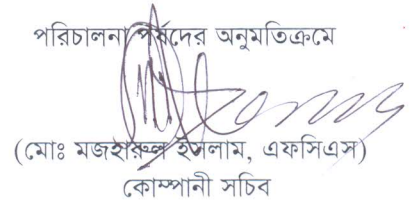 পরিচালনা পর্ষদের অনুমতিক্রমে
(মোঃ মজহারুল ইসলাম, এফসিএস)
কোম্পানী সচিব